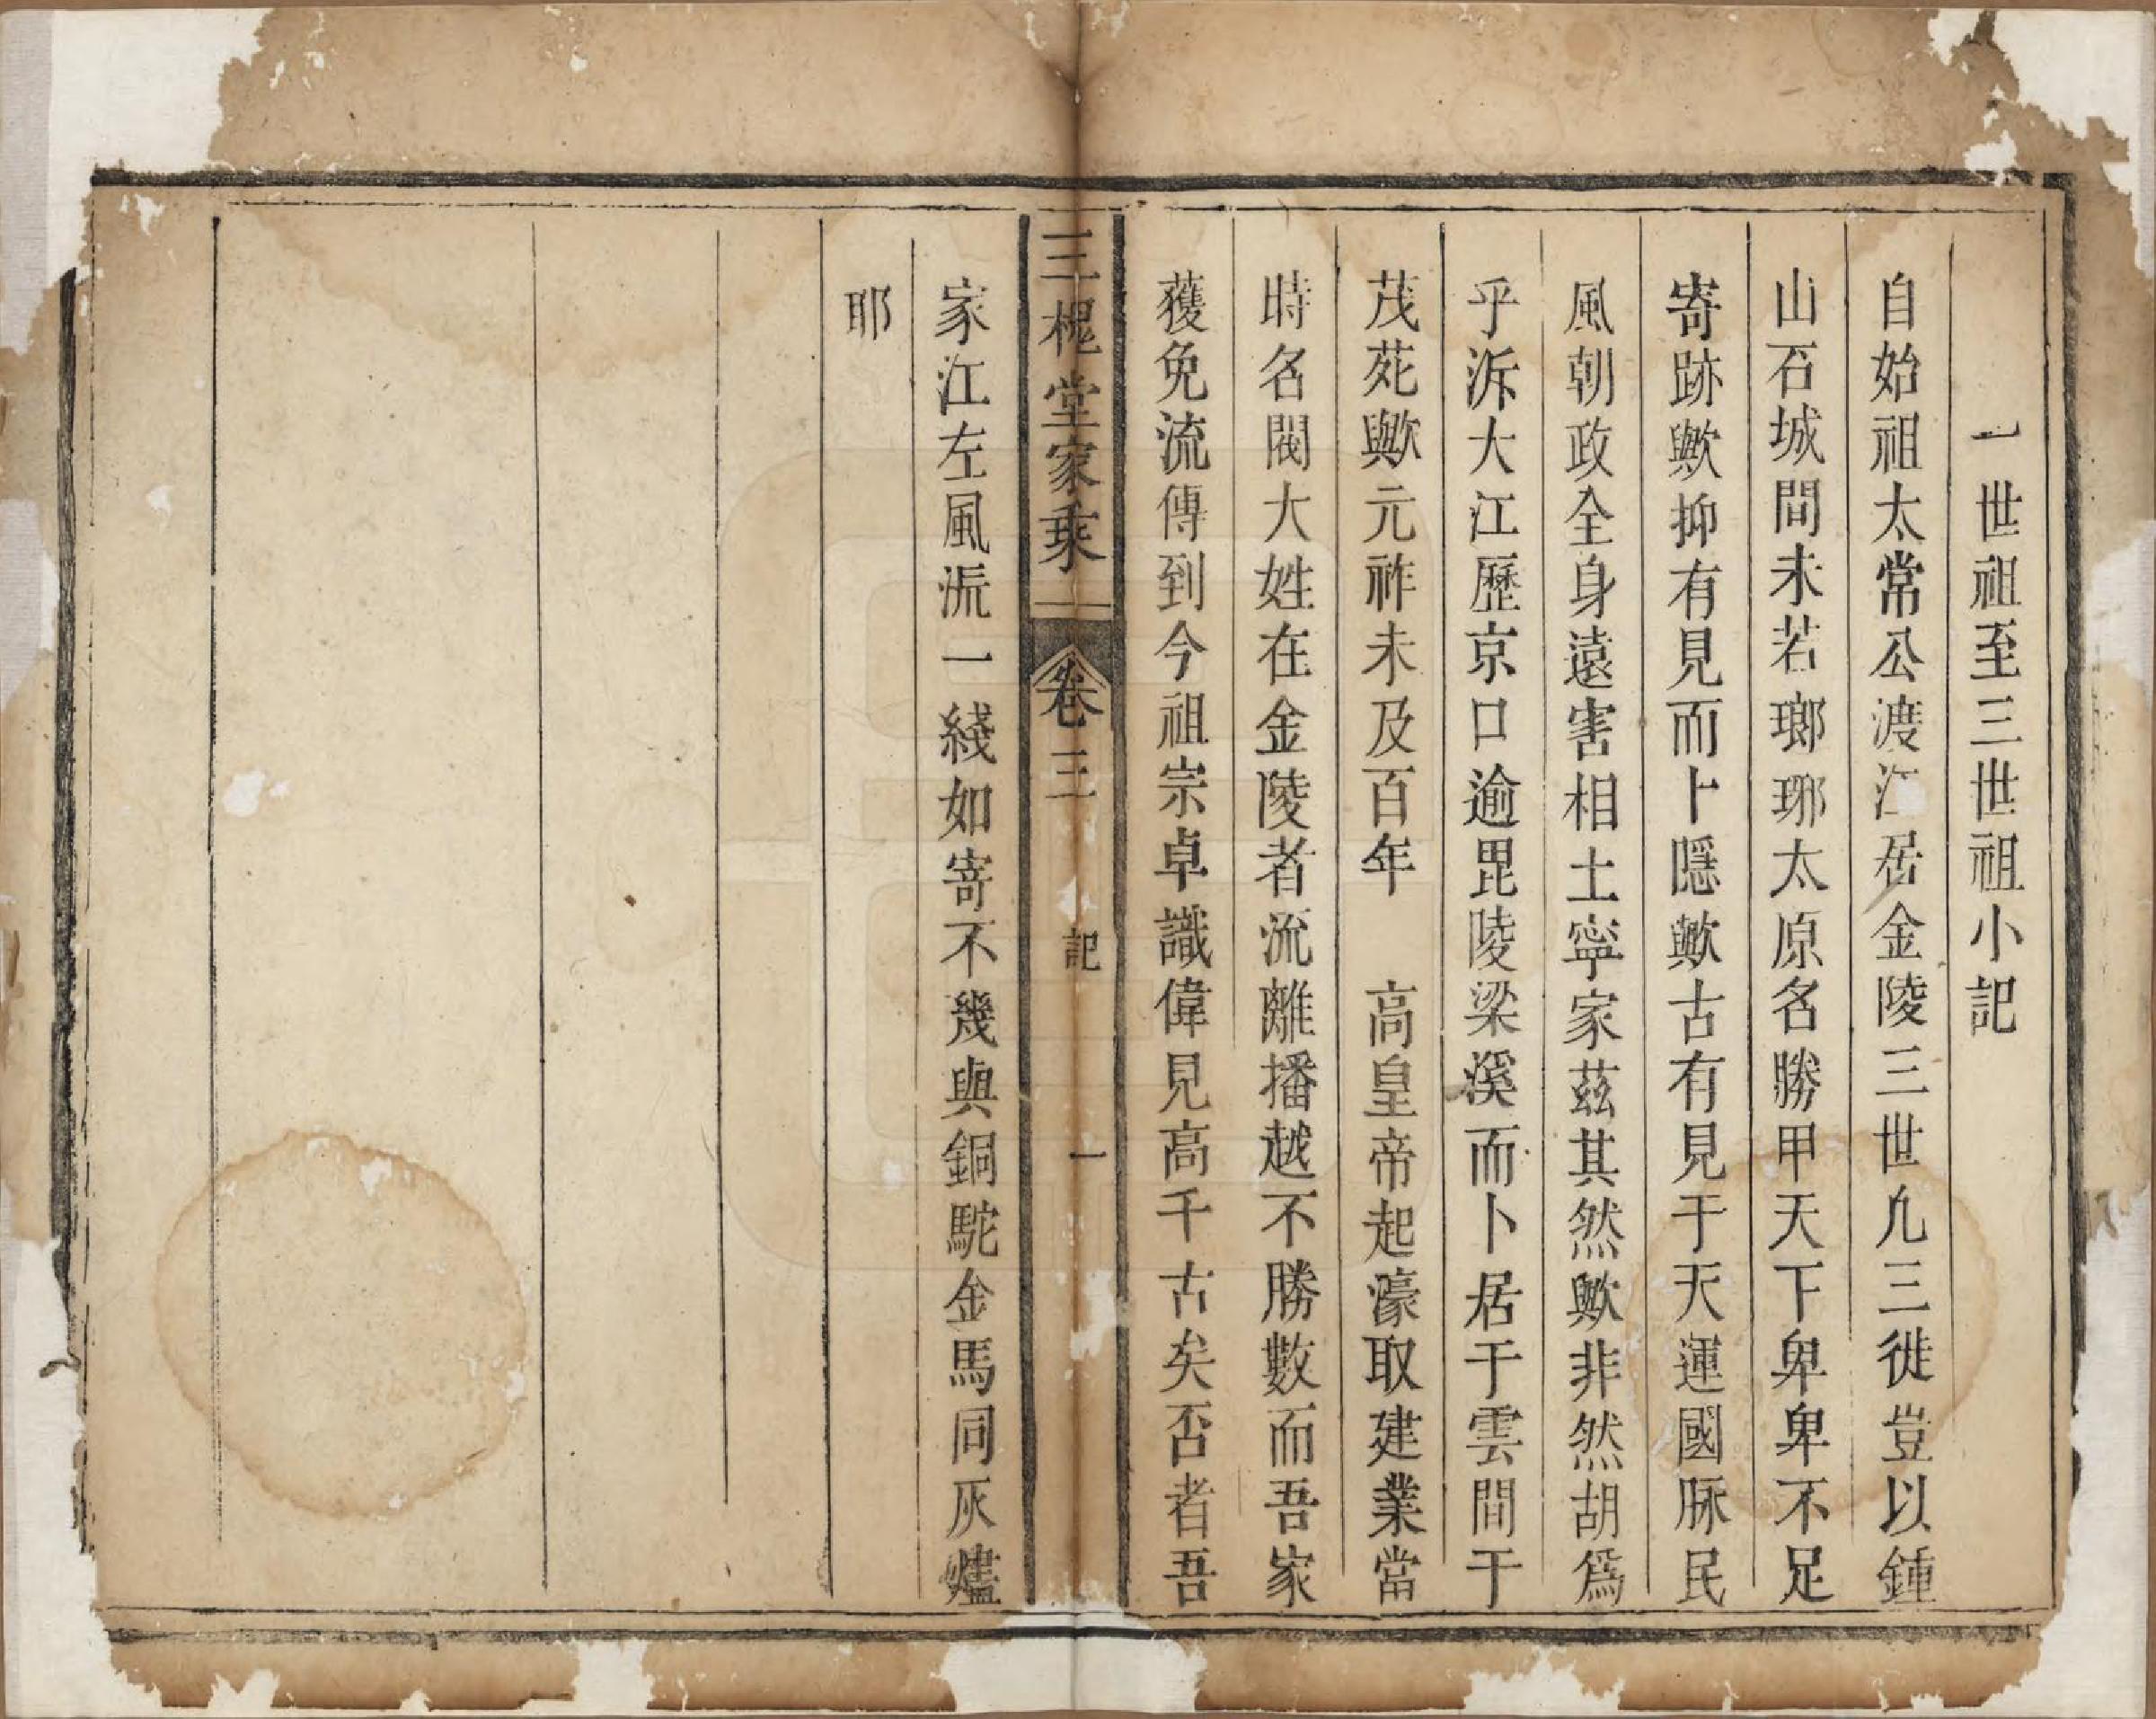 一世祖至三世祖小記
自始祖太常公渡江居金陵三世凢三徙豈以鍾
山石城間未若瑯琊太原名勝甲天下卑卑不足
寄跡歟抑有見而卜隱歟古有見于天運國脉民
風朝政全身遠害相土寧家茲其然歟非然胡爲
乎泝大江歷京口逾毘陵梁溪而卜居于雲間于
茂苑歟元祚未及百年　高皇帝起濠取建業當
時名閥大姓在金陵者流離播越不勝數而吾家
獲免流傳到今祖宗卓識偉見高千古矣否者吾
三槐堂家乘
卷三
記
一
家江左風流一綫如寄不幾與銅駝金馬同灰燼
耶